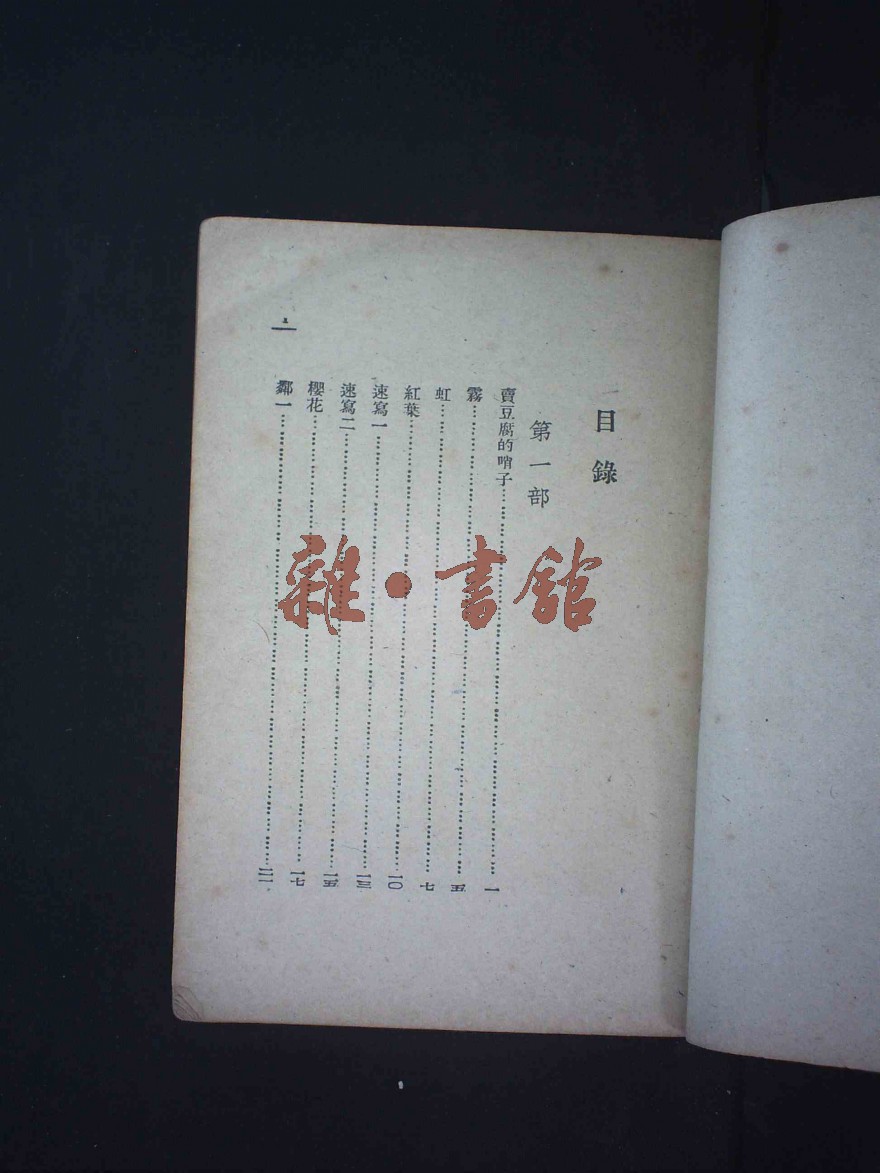 目錄
第一部
賣豆腐的哨子⋯⋯一
霧⋯⋯五
虹⋯⋯七
紅葉⋯⋯一〇
速寫一⋯⋯一三
速寫二⋯⋯一五
櫻花⋯⋯一七
鄰一⋯⋯二一
雜·書館